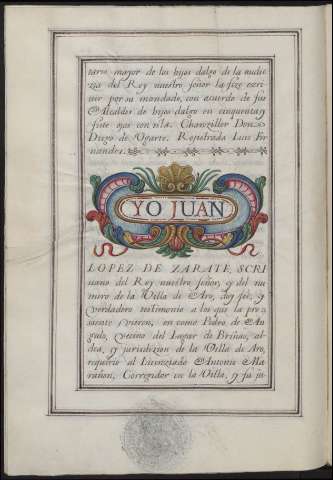 tario mayor de los hijos dalgo de la audien
zia del Rey nuestro señor la fize escri
uir por su mandado, con acuerdo de sus
Alcaldes de hijos dalgo en cinquenta y
siete ojas con esta. Chanziller Don
Diego de Ugarte. Rejistrada Luis Fer
nandez.
YO JUAN
LOPEZ DE ZARATE, SCRI
uano del Rey nuestro señor, y del nu
mero de la Villa de Aro, doy feè, y
verdadero testimonio a los que la pre
sente vieren, en como Pedro de An
gulo, vezino del Lugar de Briñas, al
dea, y jurisdizion de la Villa de Aro,
requirio al Lizenziado Antonio Ma
rañon, Corregidor en la Villa, y su ju